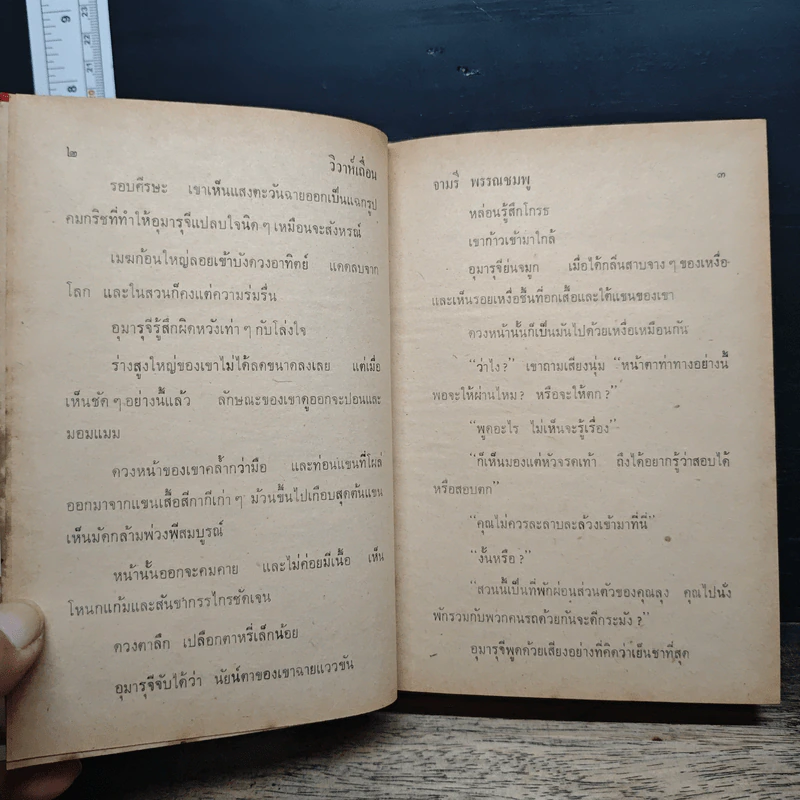 ๒ วิวาห์เถื่อน
รอบศีรษะ เขาเห็นแสงตะวันฉายออกเป็นแฉกรูป
คมกริชที่ทำให้อุมารุจีแปลบใจนิด ๆ เหมือนจะสังหรณ์
เมฆก้อนใหญ่ลอยเข้าบังดวงอาทิตย์ แดดลบจาก
โลก และในสวนก็คงแต่ความร่มรื่น
อุมารุจีรู้สึกผิดหวังเท่า ๆ กับโล่งใจ
ร่างสูงใหญ่ของเขาไม่ได้ลดขนาดลงเลย แต่เมื่อ
เห็นชัด ๆ อย่างนี้แล้ว ลักษณะของเขาดูออกจะปอนและ
มอมแมม
ดวงหน้าของเขาคล้ำกว่ามือ และท่อนแขนที่โผล่
ออกมาจากแขนเสื้อสีกากีเก่า ๆ ม้วนขึ้นไปเกือบสุดต้นแขน
เห็นมัดกล้ามพ่วงพีสมบูรณ์
หน้านั้นออกจะคมคาย และไม่ค่อยมีเนื้อ เห็น
โหนกแก้มและสันขากรรไกรชัดเจน
ดวงตาลึก เปลือกตาหรี่เล็กน้อย
อุมารุจีจับได้ว่า นัยน์ตาของเขาฉายแววขัน
จามรี พรรณชมพู ๓
หล่อนรู้สึกโกรธ
เขาก้าวเข้ามาใกล้
อุมารุจีย่นจมูก เมื่อได้กลิ่นสาบจาง ๆ ของเหงื่อ
และเห็นรอยเหงื่อชื้นที่อกเสื้อและใต้แขนของเขา
ดวงหน้านั้นก็เป็นมันไปด้วยเหงื่อเหมือนกัน
“ว่าไง?” เขาถามเสียงนุ่ม “หน้าตาท่าทางอย่างนี้
พอจะให้ผ่านไหม? หรือจะให้ตก?”
“พูดอะไร ไม่เห็นจะรู้เรื่อง”
“ก็เห็นมองแต่หัวจรดเท้า ถึงได้อยากรู้ว่าสอบได้
หรือสอบตก”
“คุณไม่ควรละลาบละล้วงเข้ามาที่นี่”
“งั้นหรือ?”
“สวนนี้เป็นที่พักผ่อนส่วนตัวของคุณลุง คุณไปนั่ง
พักรวมกับพวกคนรถด้วยกันจะดีกระมัง?”
อุมารุจีพูดด้วยเสียงอย่างที่คิดว่าเย็นชาที่สุด
9
8
23
22
21